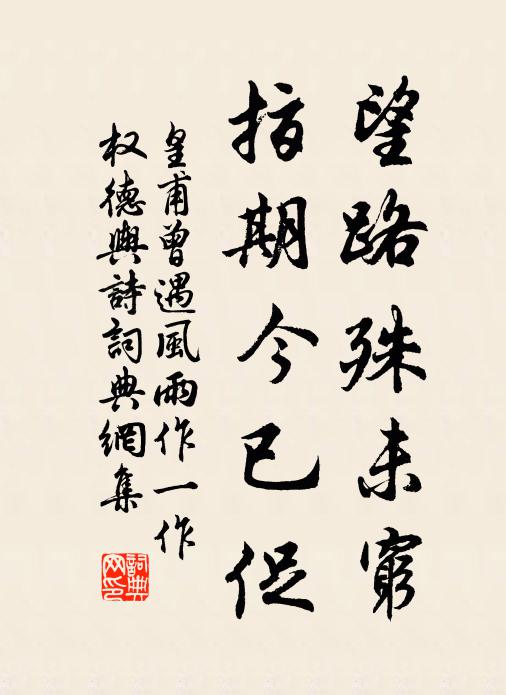 望路殊未窮
指期今已促
皇甫曾遇風雨作一作
权德輿詩詞典網集
詞典
网印